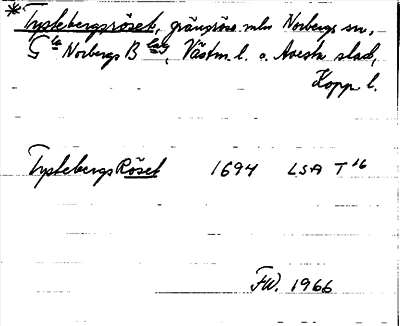 * Tyskebergsröset, gränsröse mln Norbergs sn,
G la Norbergs B lag, Västm. l. o. Avesta stad,
Kopp l.
TyskebergsRöset 1694 LSA T 16
FW. 1966